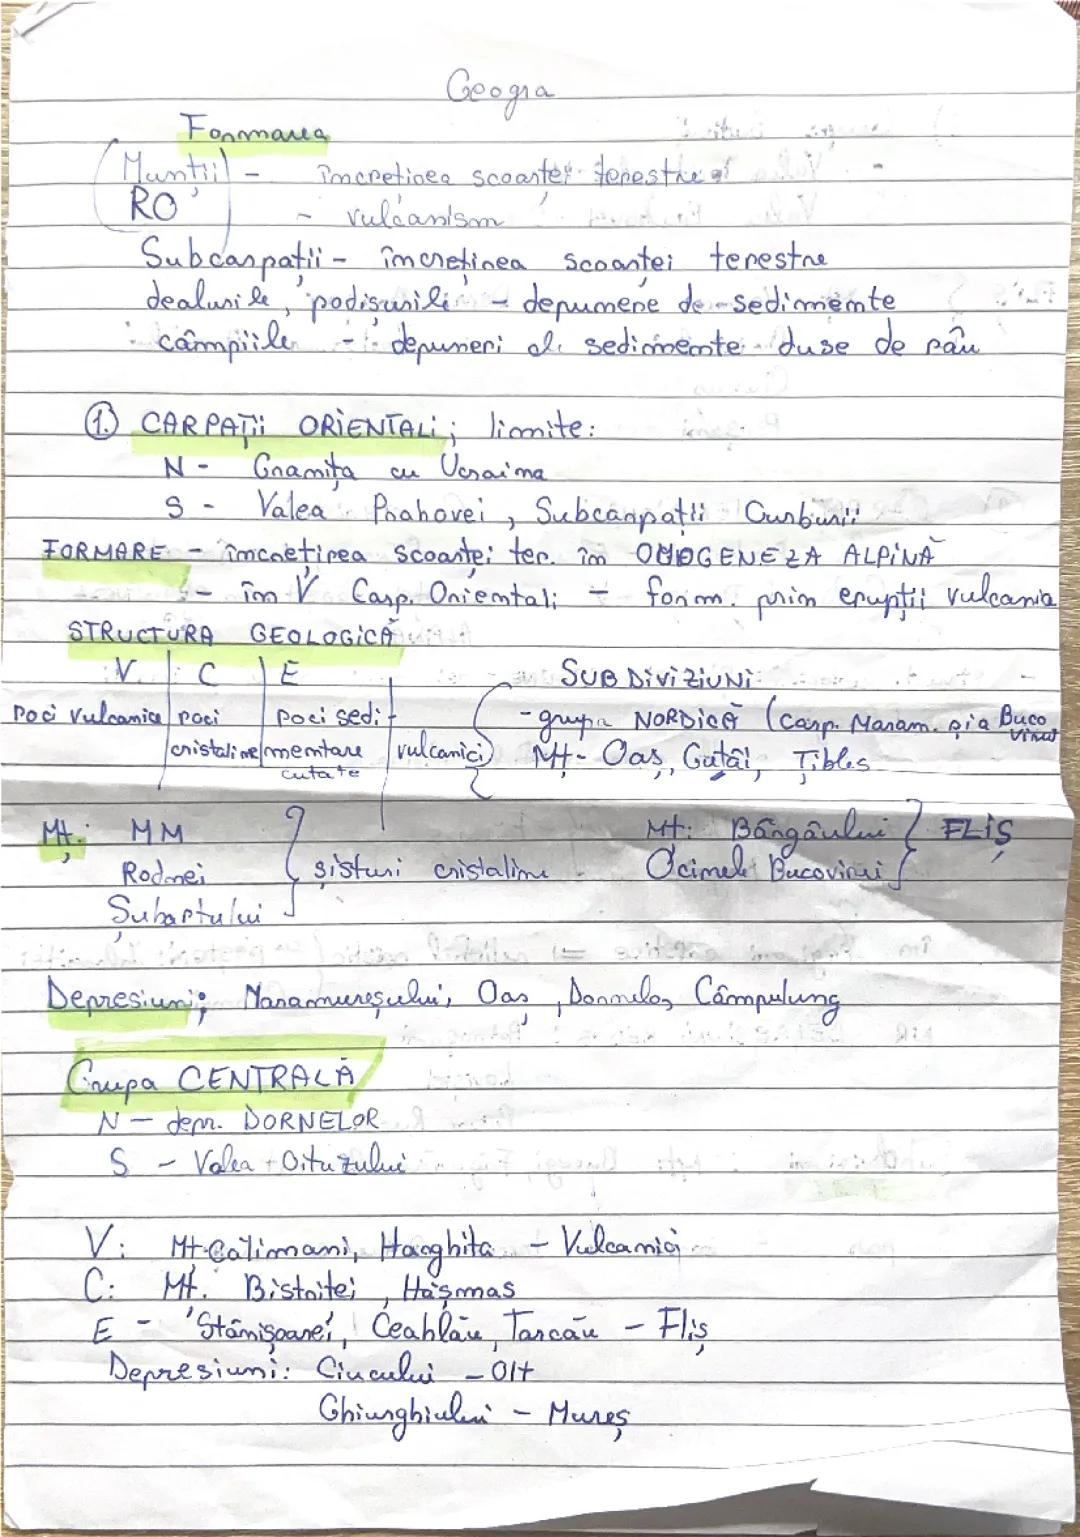 Geogra
Formarea
Munții - încrețirea scoarței terestre
RO - vulcanism
Subcarpații - încrețirea scoarței terestre
dealurile, podișurile - depunere de sedimente
câmpiile - depuneri de sedimente duse de râu
1. CARPAȚII ORIENTALI; limite:
N - Granița cu Ucraina
S - Valea Prahovei, Subcarpații Curburii
FORMARE - încrețirea scoarței ter. în OROGENEZA ALPINĂ
- în V Carp. Orientali - form. prin erupții vulcanice
STRUCTURA GEOLOGICĂ
V C E SUBDIVIZIUNI
roci vulcanice roci roci sedi- - grupa NORDICĂ (Carp. Maram. și a Buco
cristaline mentare vulcanici Mt- Oaș, Gutâi, Țibleș vinei
cutate
Mț: MM Mt: Bârgăului FLIȘ
Rodnei șisturi cristaline Ocinele Bucovinei
Șuhartului
Depresiuni: Maramureșului, Oaș, Dornelor, Câmpulung
Grupa CENTRALĂ
N - depr. DORNELOR
S - Valea Oituzului
V: Mt. Călimani, Harghita - Vulcanici
C: Mt. Bistriței, Hășmaș
E - Stânișoarei, Ceahlău, Tarcău - Fliș
Depresiuni: Ciucului - Olt
Ghiurghiului - Mureș